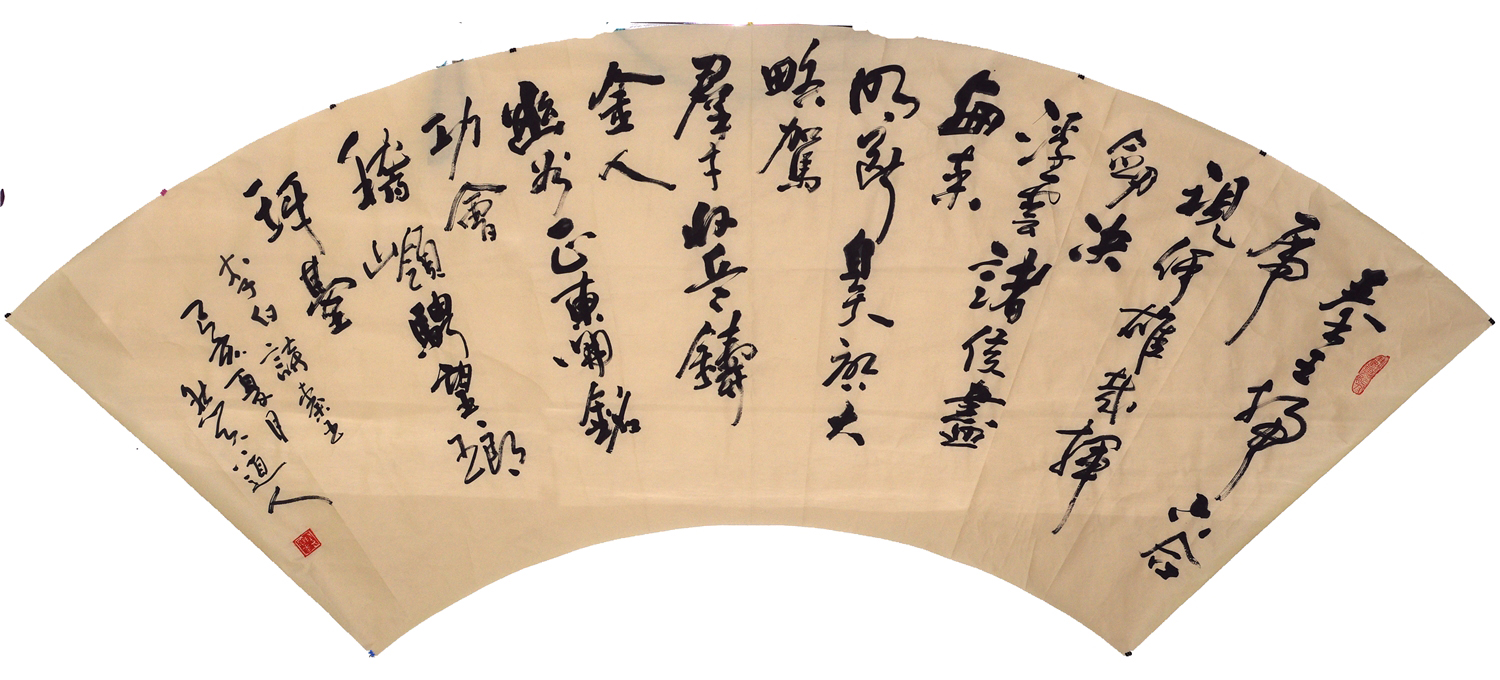 秦王掃六合
虎
視何雄哉揮
劍决
浮雲諸侯盡
西来
明斷自天啟大
略駕
羣才收兵鑄
金人
函谷正東開銘
功會
稽嶺騁望琅
琊臺
李白詩秦王
己亥夏月道人